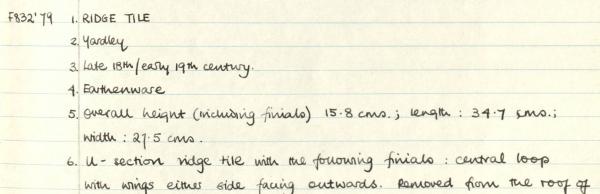 F832'79 1. RIDGE TILE
2. Yardley
3. Late 18th/early 19th century.
4. Earthenware
5. Overall height (including finials) 15.8 cms.; length : 34.7 cms.;
width : 27.5 cms.
6. U-section ridge tile with the following finials : central loop
with wings either side facing outwards. Removed from the roof of